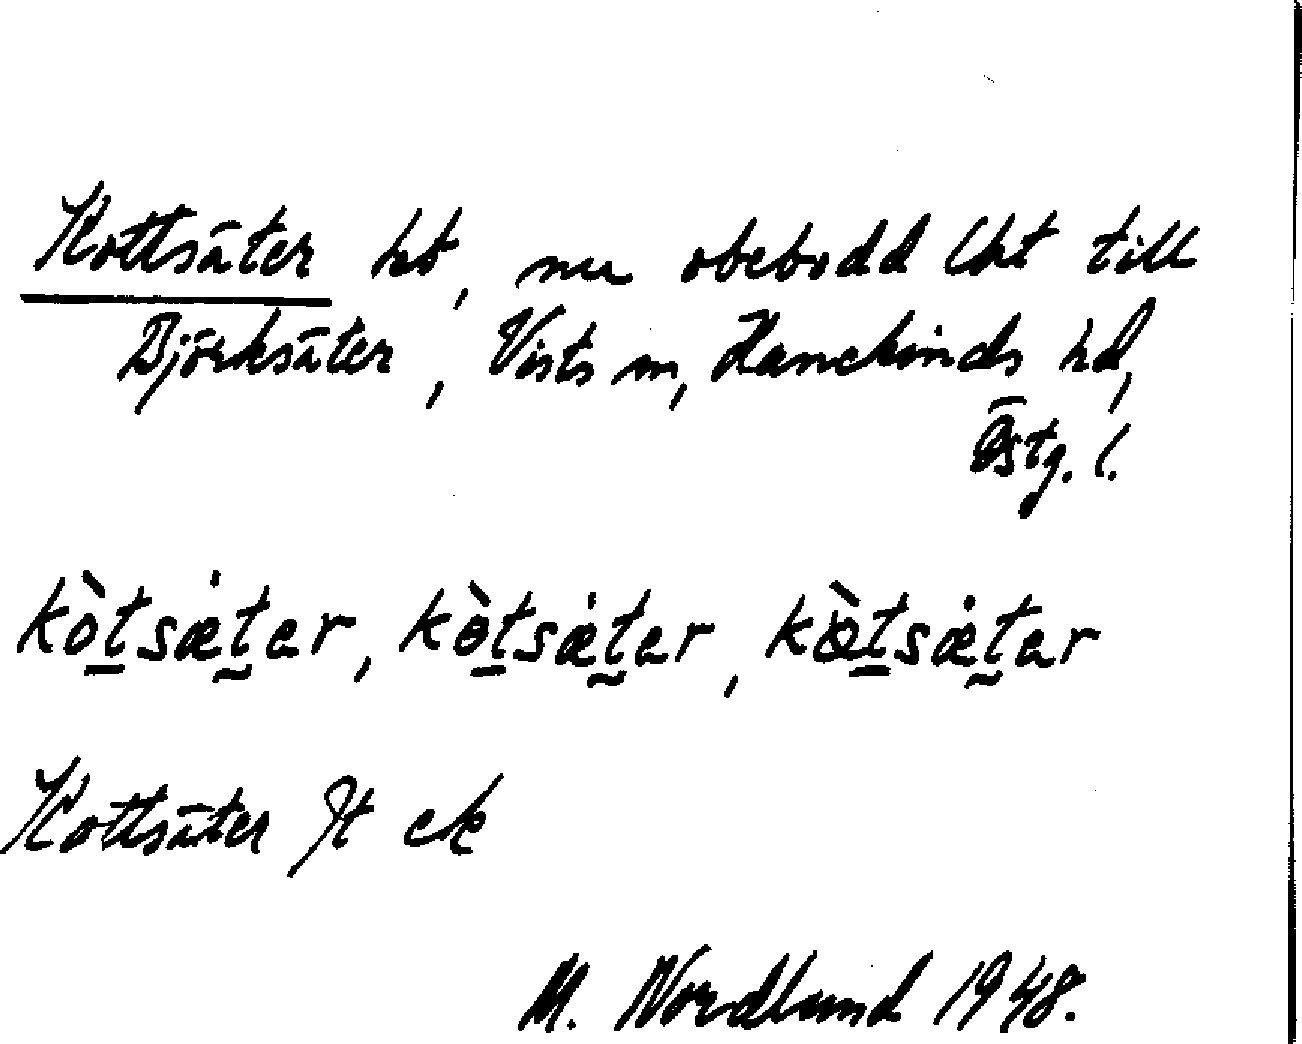 Kottsäter hd, nu obebodd lht till
Björksäter, Vists m, Hanekinds hd,
Östg. l.
kòt̠sæ̇t̰ar, kòt̠sæ̇t̰ar, kæ̀t̠sæ̇t̰ar
Kottsäter Jt ek
M. Nordlund 1948.